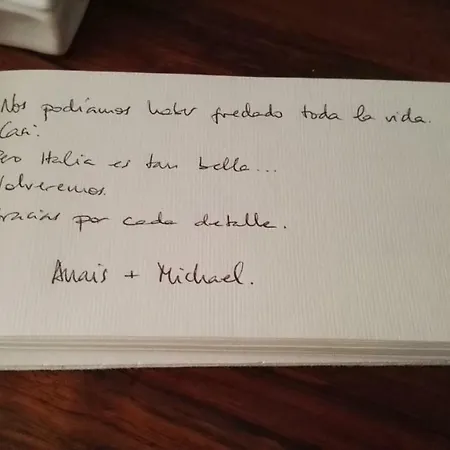 Nos podíamos haber quedado toda la vida.
Casi.
Pero Italia es tan bella...
Volveremos.
Gracias por cada detalle.
Anais + Michael.